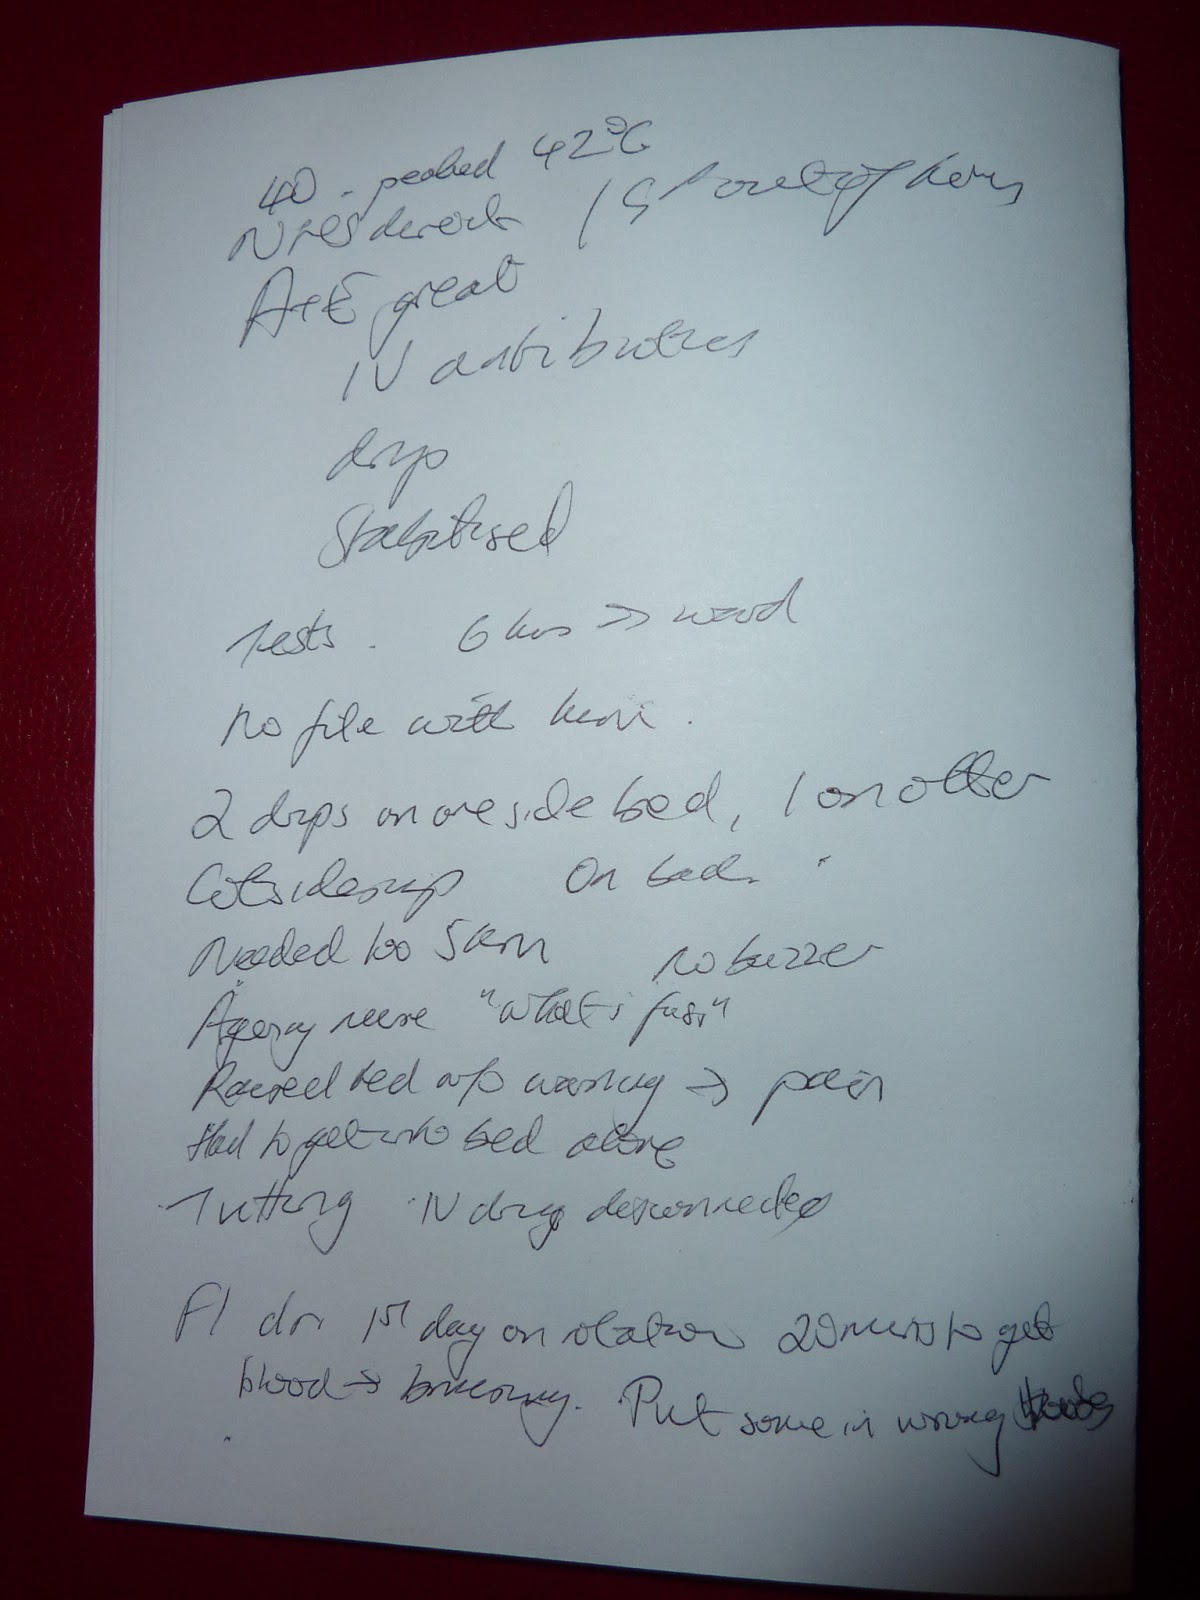 40 - peaked 42°C
NHS direct / GP out of hours
A+E great
IV antibiotics
drip
Stabilised
Tests. 6 hrs → ward
No file with him.
2 drips on one side bed, 1 on other
Cotsides up On back.
Needed loo 5am no buzzer
Agency nurse "what's fuss"
Raised bed w/o warning → pain
Had to get into bed alone
Tutting IV drip disconnected
F1 dr 1st day on rotation 20 mins to get
blood → bruising. Put some in wrong